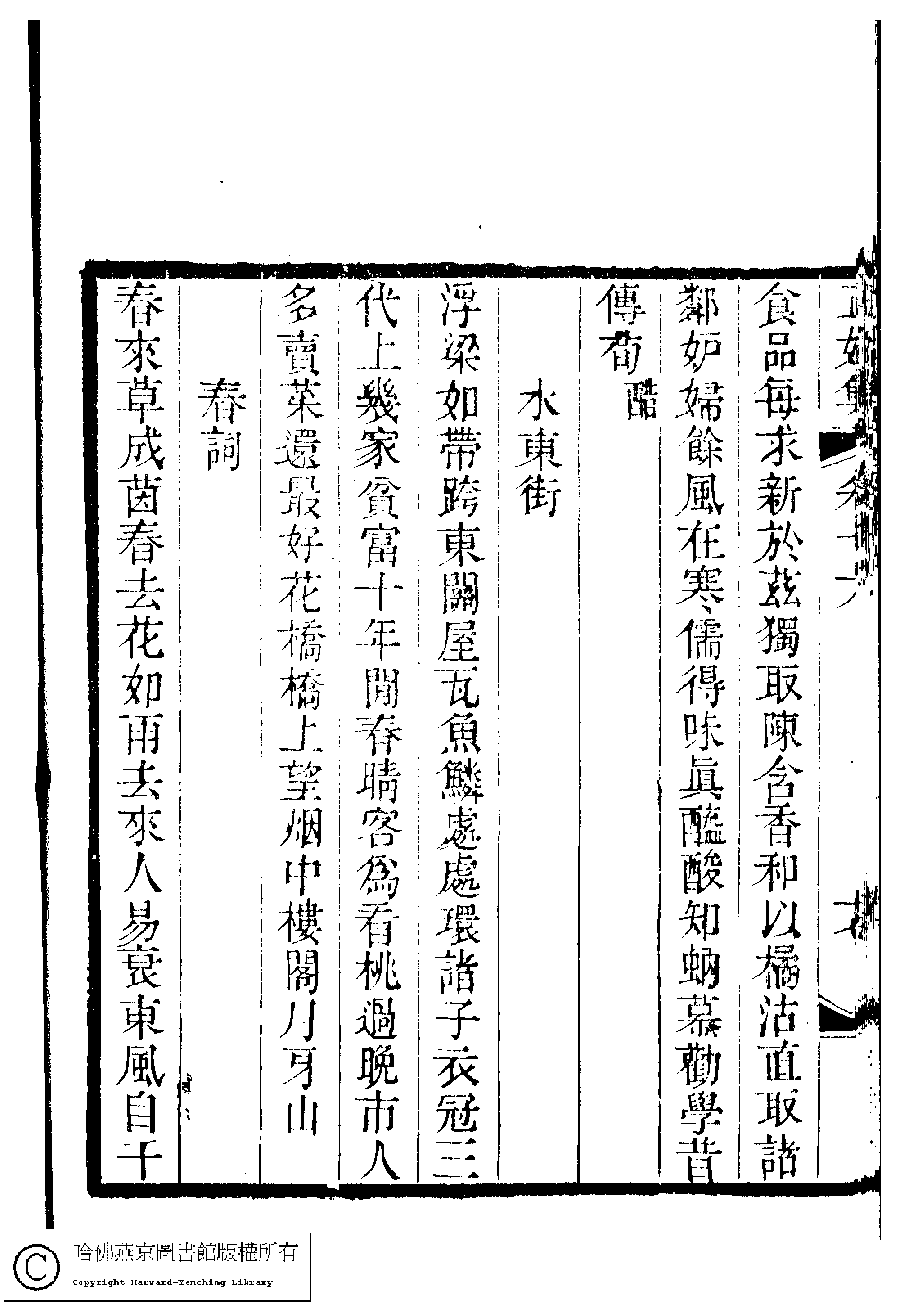 食品每求新於茲獨取陳含香和以橘沽直取諸
鄰妒婦餘風在寒儒得味眞醯酸知蚋慕勸學昔
傳荀
醋
水東街
浮梁如帶跨東關屋瓦魚鱗處處環諸子衣冠三
代上幾家貧富十年閒春晴客爲看桃過晚市人
多賣菜還最好花橋橋上望烟中樓閣月牙山
春詞
春來草成茵春去花如雨去來人易衰東風自千
哈佛燕京圖書館版權所有
Copyright Harvard-Yenching Library